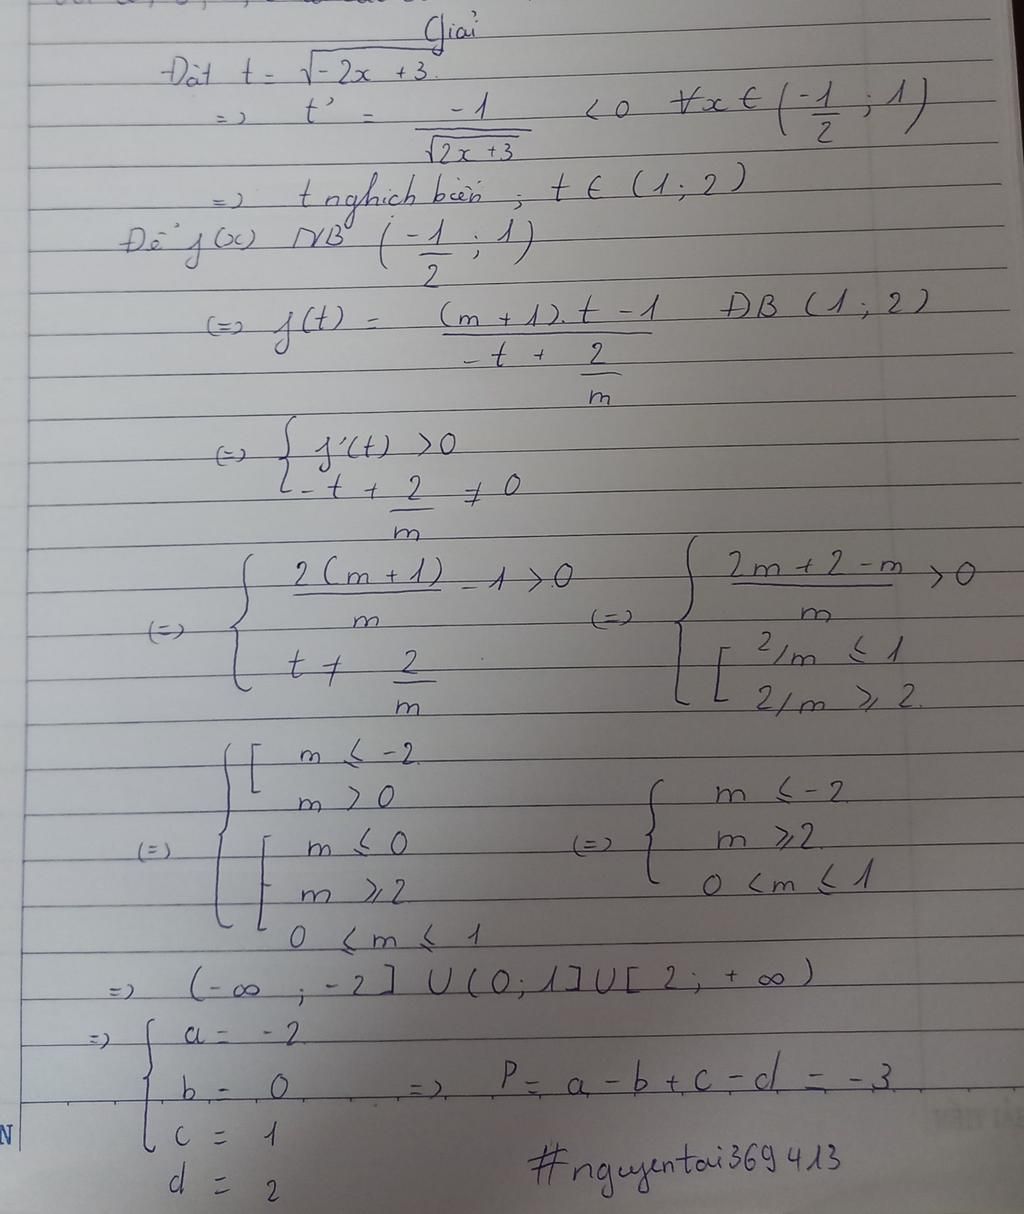 Giải
Đặt t = √-2x + 3
=> t' = -1 / √2x + 3 < 0 ∀x ∈ (-1/2 ; 1)
=> t nghịch biến ; t ∈ (1 ; 2)
Để f(x) NB (-1/2 ; 1)
(=) f(t) = (m + 1). t - 1 / -t + 2/m ĐB (1 ; 2)
(=) { f'(t) > 0
-t + 2/m ≠ 0
(=) { 2(m + 1)/m - 1 > 0 (=) { 2m + 2 - m / m > 0
t ≠ 2/m [ 2/m ≤ 1
2/m ≥ 2
(=) { [ m ≤ -2 (=) { m ≤ -2
m > 0 m ≥ 2
[ m ≤ 0 0 < m ≤ 1
m ≥ 2
0 ≤ m ≤ 1
=> (-∞ ; -2] U (0 ; 1] U [2 ; +∞)
=> { a = -2
b = 0 => P = a - b + c - d = -3
c = 1
d = 2
#nguyentai369413
N